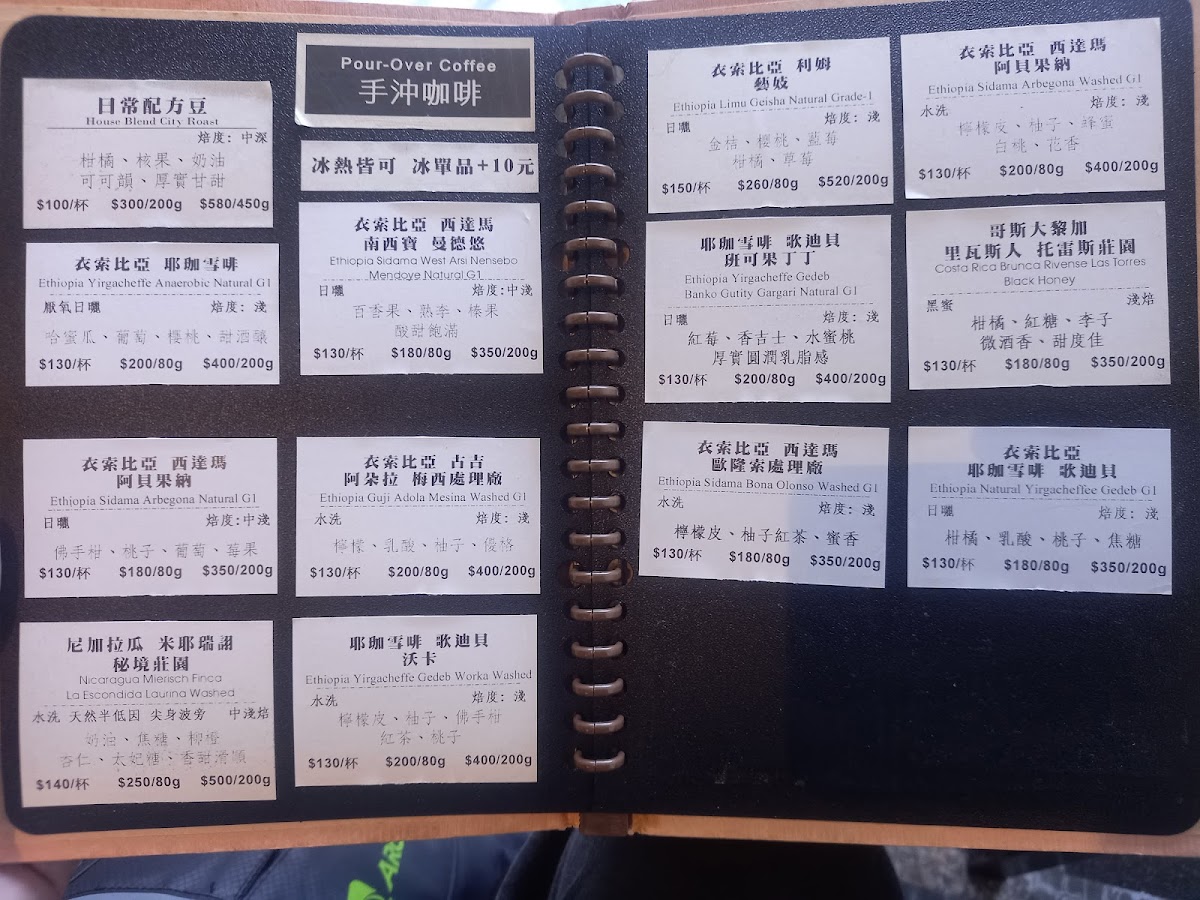 Pour-Over Coffee
手沖咖啡
冰熱皆可 冰單品+10元
日常配方豆
House Blend City Roast
焙度: 中深
柑橘、核果、奶油
可可韻、厚實甘甜
$100/杯 $300/200g $580/450g
衣索比亞 耶珈雪啡
Ethiopia Yirgacheffe Anaerobic Natural G1
厭氧日曬 焙度: 淺
哈蜜瓜、葡萄、櫻桃、甜酒釀
$130/杯 $200/80g $400/200g
衣索比亞 西達馬
南西寶 曼德悠
Ethiopia Sidama West Arsi Nensebo
Mendoye Natural G1
日曬 焙度:中淺
百香果、熟李、榛果
酸甜飽滿
$130/杯 $180/80g $350/200g
衣索比亞 西達瑪
阿貝果納
Ethiopia Sidama Arbegona Natural G1
日曬 焙度:中淺
佛手柑、桃子、葡萄、莓果
$130/杯 $180/80g $350/200g
衣索比亞 古吉
阿朵拉 梅西處理廠
Ethiopia Guji Adola Mesina Washed G1
水洗 焙度: 淺
檸檬、乳酸、柚子、優格
$130/杯 $200/80g $400/200g
尼加拉瓜 米耶瑞詡
秘境莊園
Nicaragua Mierisch Finca
La Escondida Laurina Washed
水洗 天然半低因 尖身波旁 中淺焙
奶油、焦糖、柳橙
杏仁、太妃糖、香甜滑順
$140/杯 $250/80g $500/200g
耶珈雪啡 歌迪貝
沃卡
Ethiopia Yirgacheffe Gedeb Worka Washed
水洗 焙度: 淺
檸檬皮、柚子、佛手柑
紅茶、桃子
$130/杯 $200/80g $400/200g
衣索比亞 利姆
藝妓
Ethiopia Limu Geisha Natural Grade-1
日曬 焙度: 淺
金桔、櫻桃、藍莓
柑橘、草莓
$150/杯 $260/80g $520/200g
衣索比亞 西達瑪
阿貝果納
Ethiopia Sidama Arbegona Washed G1
水洗 焙度: 淺
檸檬皮、柚子、蜂蜜
白桃、花香
$130/杯 $200/80g $400/200g
耶珈雪啡 歌迪貝
班可果丁丁
Ethiopia Yirgacheffe Gedeb
Banko Gutity Gargari Natural G1
日曬 焙度: 淺
紅莓、香吉士、水蜜桃
厚實圓潤乳脂感
$130/杯 $200/80g $400/200g
哥斯大黎加
里瓦斯人 托雷斯莊園
Costa Rica Brunca Rivense Las Torres
Black Honey
黑蜜 淺焙
柑橘、紅糖、李子
微酒香、甜度佳
$130/杯 $180/80g $350/200g
衣索比亞 西達瑪
歐隆索處理廠
Ethiopia Sidama Bona Olonso Washed G1
水洗 焙度: 淺
檸檬皮、柚子紅茶、蜜香
$130/杯 $180/80g $350/200g
衣索比亞
耶珈雪啡 歌迪貝
Ethiopia Natural Yirgacheffee Gedeb G1
日曬 焙度: 淺
柑橘、乳酸、桃子、焦糖
$130/杯 $180/80g $350/200g